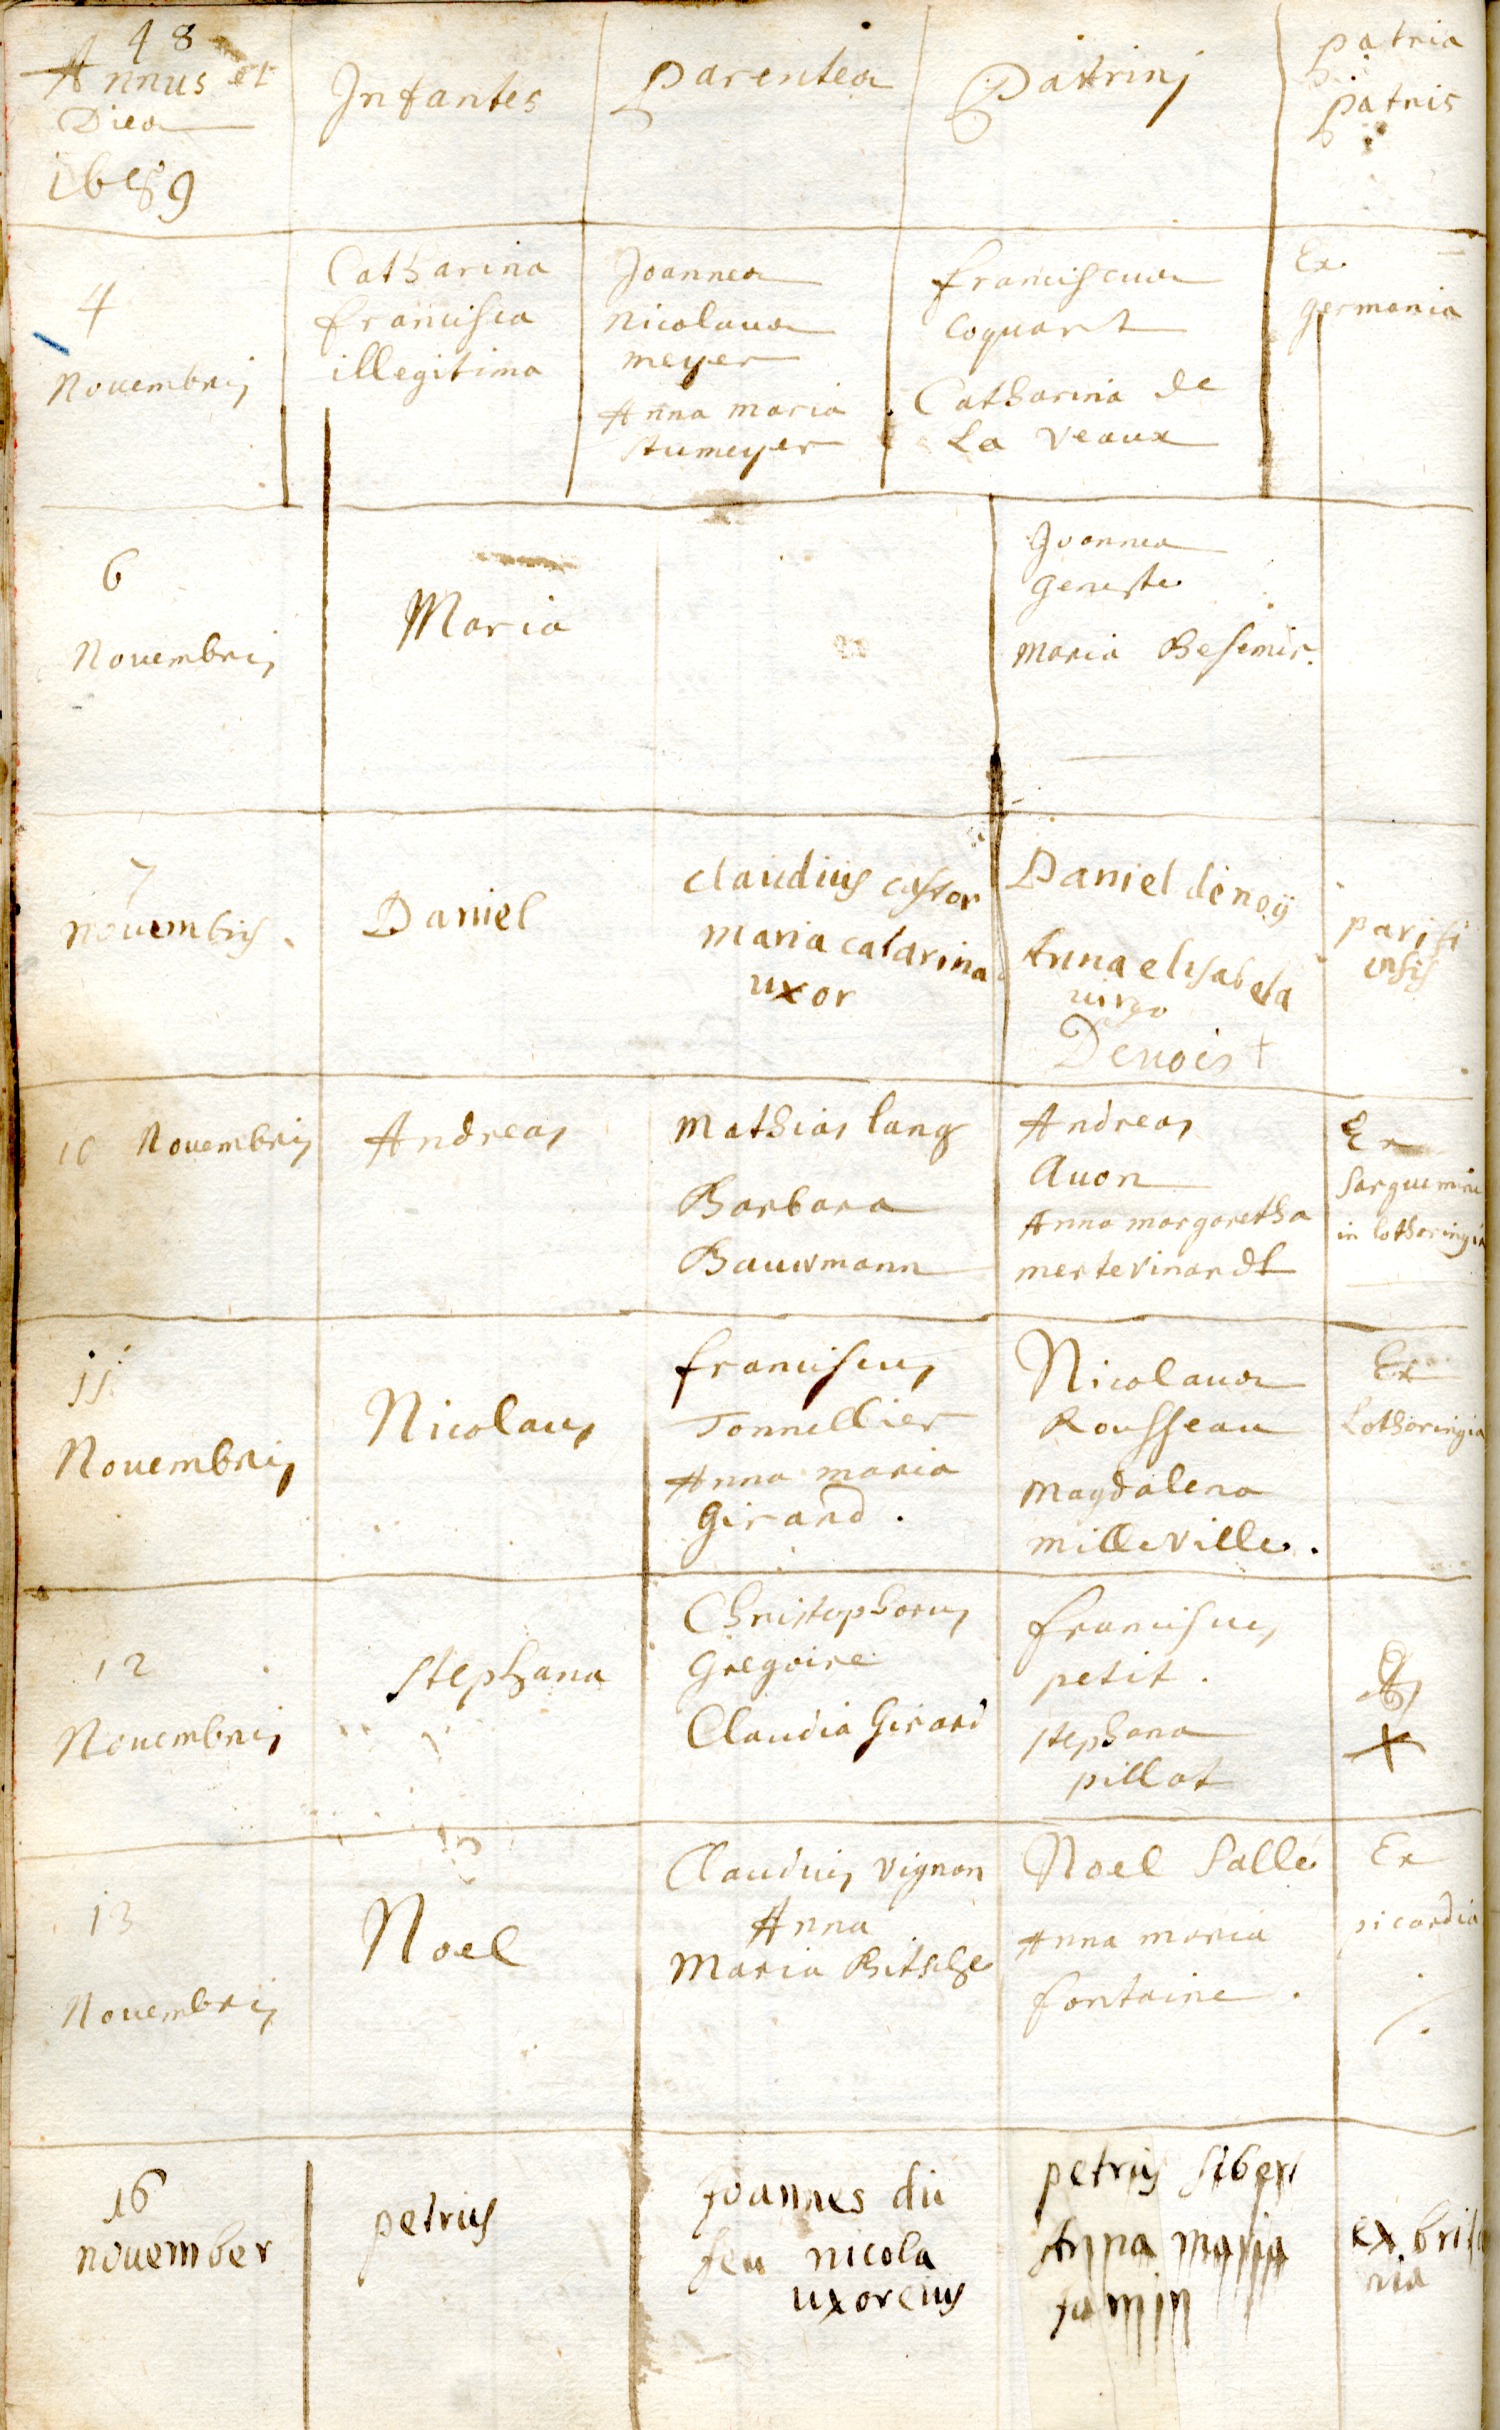 48
Annus et
Dies
1689
Infantes
Parentes
Patrinj
patria
patris
4
Nouembris
Catharina
francisca
illegitima
Joannes
nicolaus
meyer
Anna maria
stumeyer
franciscus
coquart
Catharina de
La veaux
Ex
germania
6
Nouembris
Maria
Joannes
geneste
maria Besemir.
7
nouembris.
Daniel
claudius castor
maria catarina
uxor
Daniel denoÿ
Anna elisabeta
uirgo
Denois +
parisi
ensis
10 Nouembris
Andreas
Mathias lang
Barbara
Bauwmann
Andreas
Auon
Anna margaretha
mertevinandt
Ex
sarguemine
in lotharingia
11
Nouembris
Nicolaus
franciscus
Tonnellier
Anna maria
Girard.
Nicolaus
Rousseau
Magdalena
milleville.
Ex
Lotharingia
12
Nouembris
stephana
Christophorus
Gregoire
Claudia Girard
franciscus
petit.
stephana
pillot
13
Nouembris
Noel
Claudius vignon
Anna
Maria Bitsche
Noel Sallé
Anna maria
fontaine.
Ex
picardia
16
nouember
petrus
Joannes du
feu nicola
uxor eius
petrus siber
Anna maria
jamin
ex brita
nia